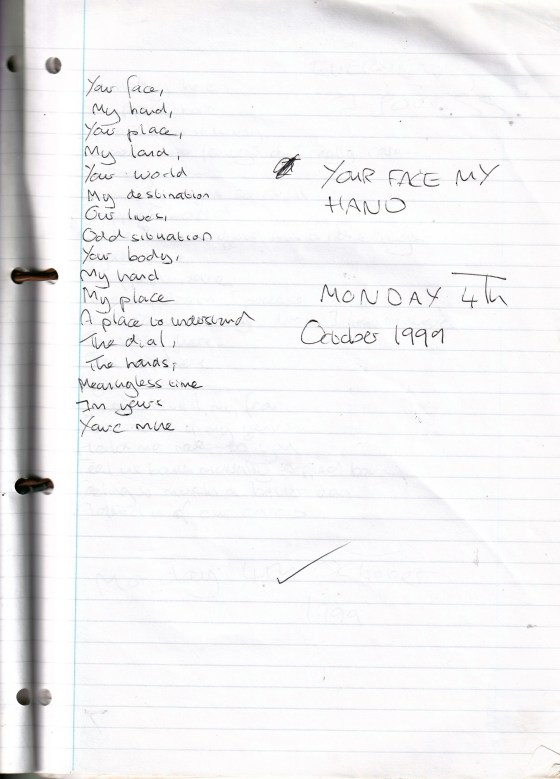 Your face,
My hand,
Your place,
My land,
Your world
My destination
Our lives,
Odd situation
Your body,
My hand
My place
A place to understand
The dial,
The hands;
Meaningless time
Im yours
Your'e mine
YOUR FACE MY
HAND
MONDAY 4Th
October 1999